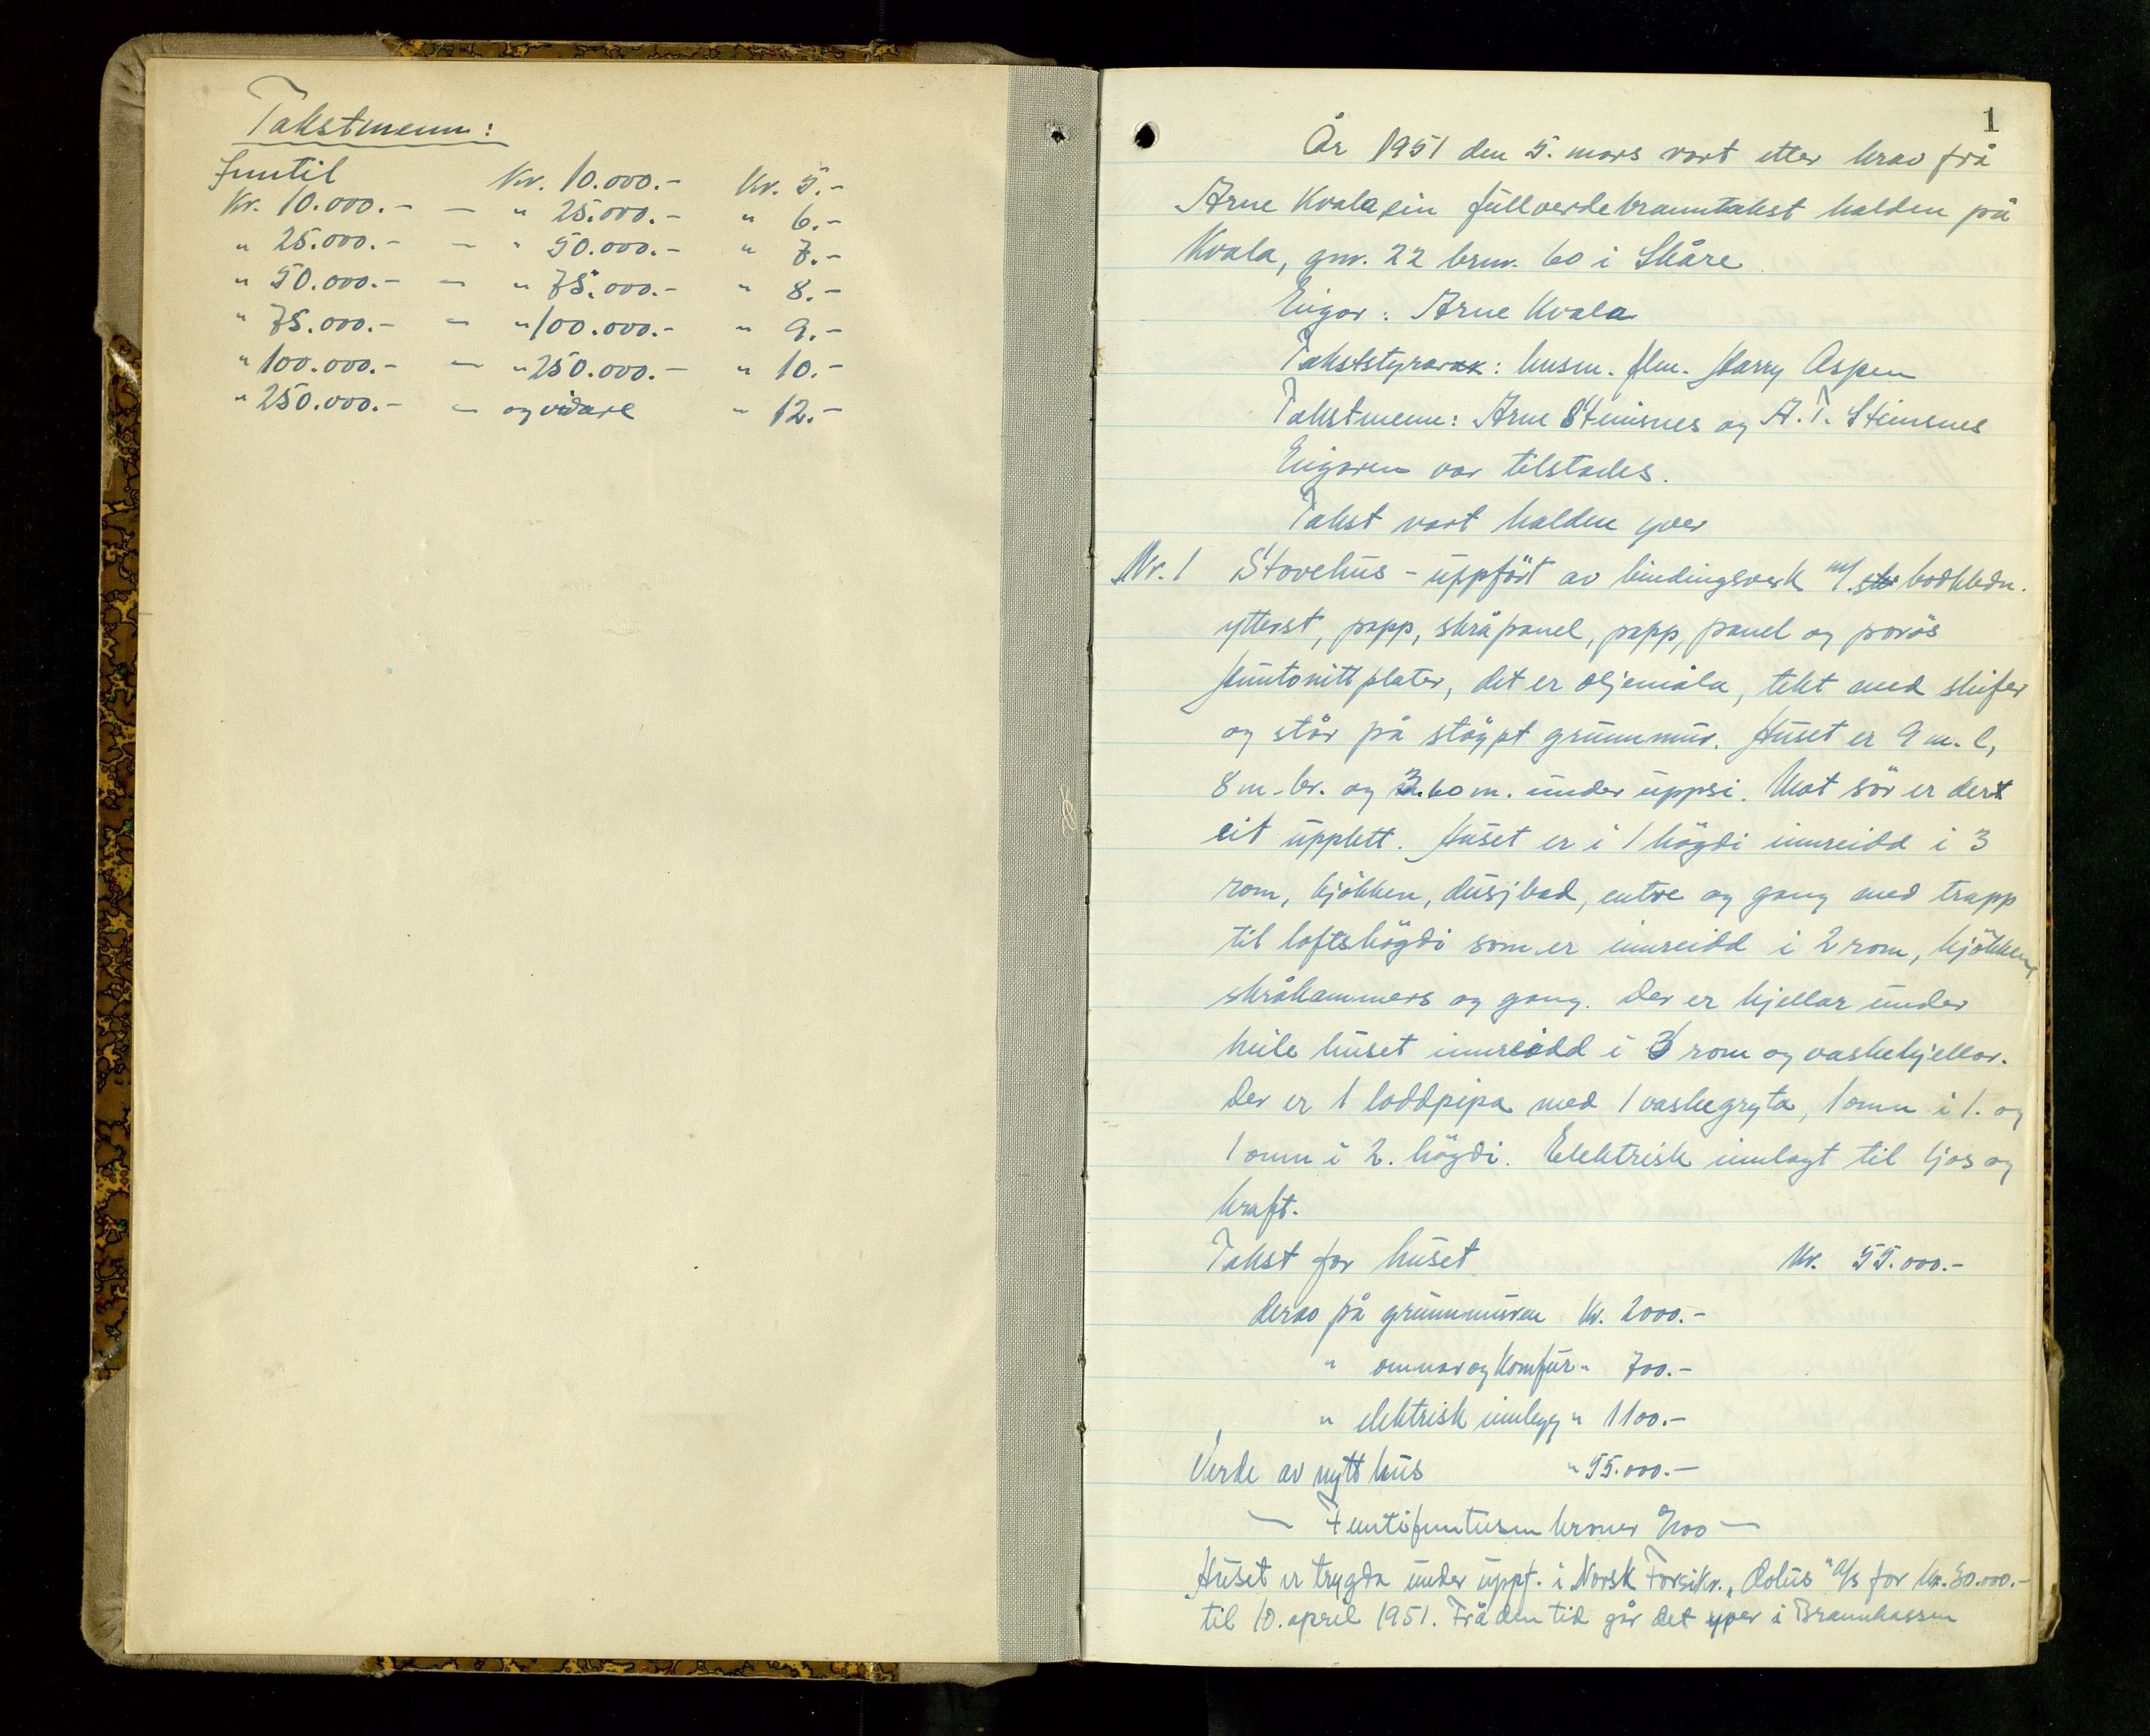 Takstmenn:
Inntil Kr. 10.000.- Kr. 5.-
Kr. 10.000.- — " 25.000.- " 6.-
" 25.000.- — " 50.000.- " 7.-
" 50.000.- — " 75.000.- " 8.-
" 75.000.- — " 100.000.- " 9.-
" 100.000.- — " 250.000.- " 10.-
" 250.000.- — og vidare " 12.-
1
År 1951 den 5. mars vart etter krav frå
Arne Kvala ein fullverdebranntakst halden på
Kvala, gnr. 22 brnr. 60 i Skåre
Eigar: Arne Kvala
Takststyrar: husm. Harry Aspen
Takstmenn: Arne Steinsnes og A. T. Steinsnes
Eigaren var tilstades.
Takst vart halden yver
Nr. 1 Stovehus - uppført av bindingsverk m/. bordkledn.
ytterst, papp, skråpanel, papp, panel og porøs
Huntonittplater, det er oljemåla, tekt med skifer
og står på støypt grunnmur. Huset er 9 m. l,
8 m. br. og 3.60 m. under uppsi. Mot sør er der
eit upplett. Huset er i 1 högdi innreidd i 3
rom, kjökken, dusjbad, entre og gang med trapp
til loftshögdi som er innreidd i 2 rom, kjökken,
skråkammers og gang. Der er kjellar under
heile huset innreidd i 3 rom og vaskekjellar.
Der er 1 loddpipa med 1 vaskegryta, 1 omn i 1. og
1 omn i 2. högdi. Elektrisk innlagt til ljos og
kraft.
Takst for huset Kr. 55.000.-
derav på grunnmuren Kr. 2000.-
" omnar og Komfur " 700.-
" elektrisk innlegg " 1100.-
Verde av nytt hus " 55.000.-
— Femtifemtusen kroner 0/00 —
Huset er trygda under uppf. i Norsk Forsikr. "Æolus" A/S for kr. 30.000.-
til 10. april 1951. Frå den tid går det yver i Brannkassen